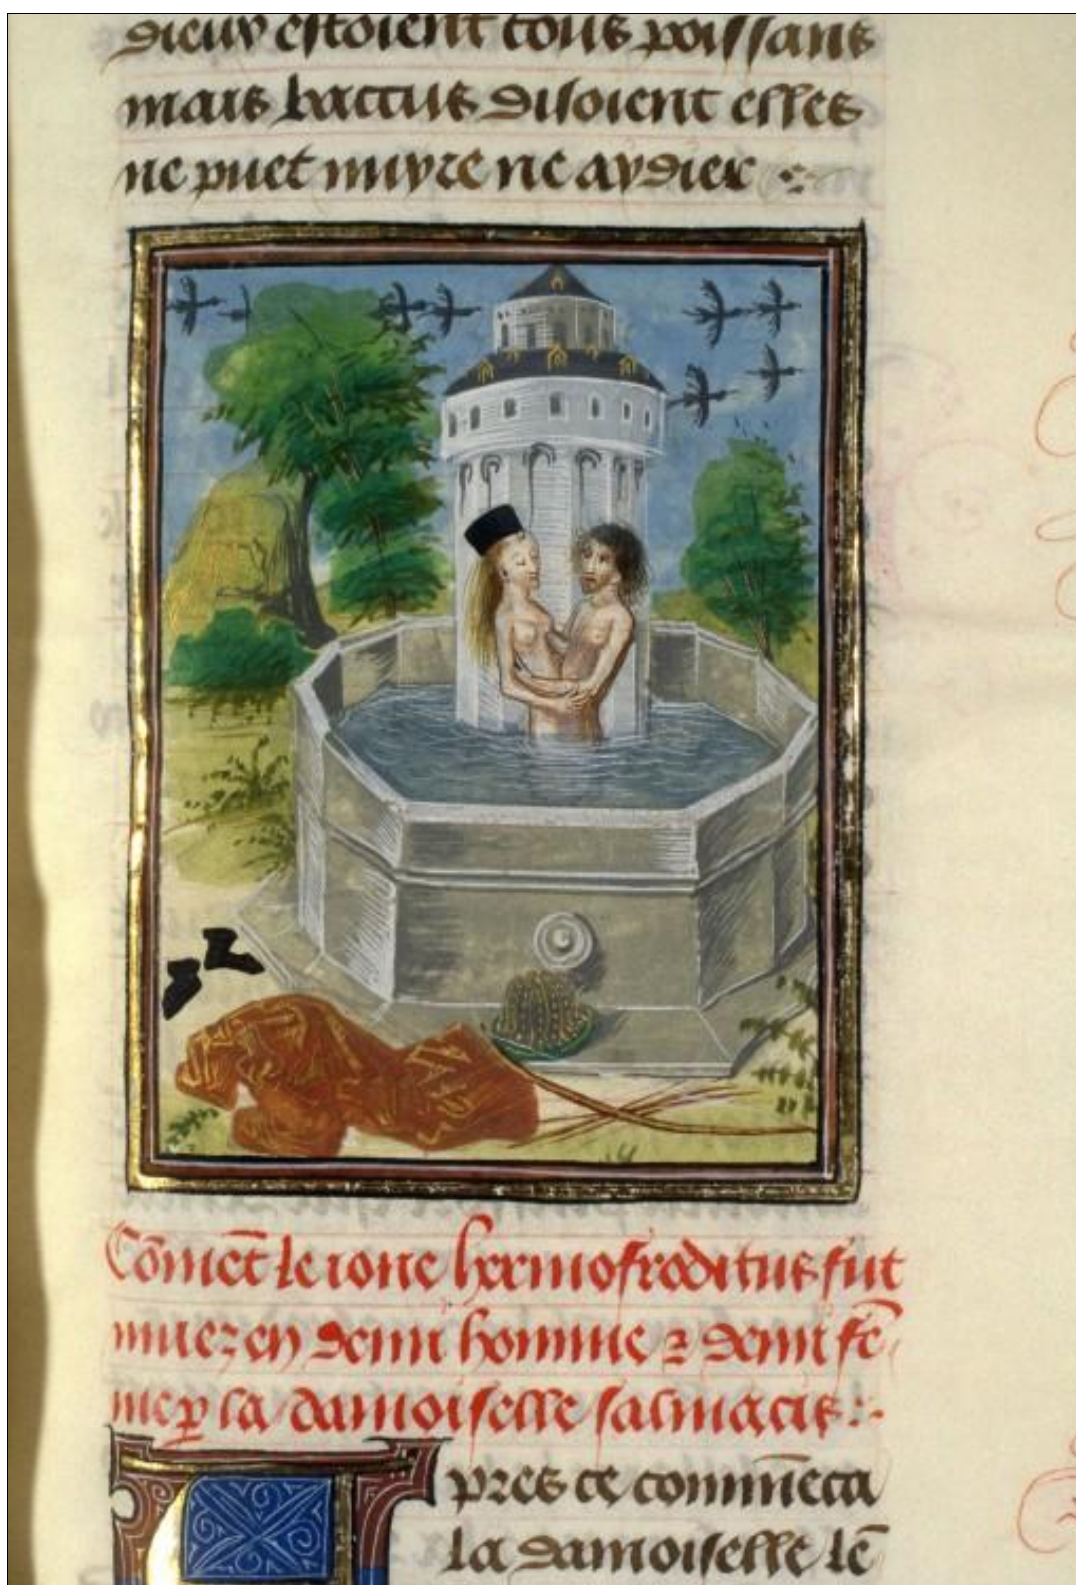 dieux estoient tous poissans
mais baccus disoient elles
ne puet nuyre ne aydier
Cōmēt le ione hermofroditus fut
muez en demi homme ⁊ demi fē
me ꝑ la damoiselle salmacis
Apres ce commēca
la damoiselle lē